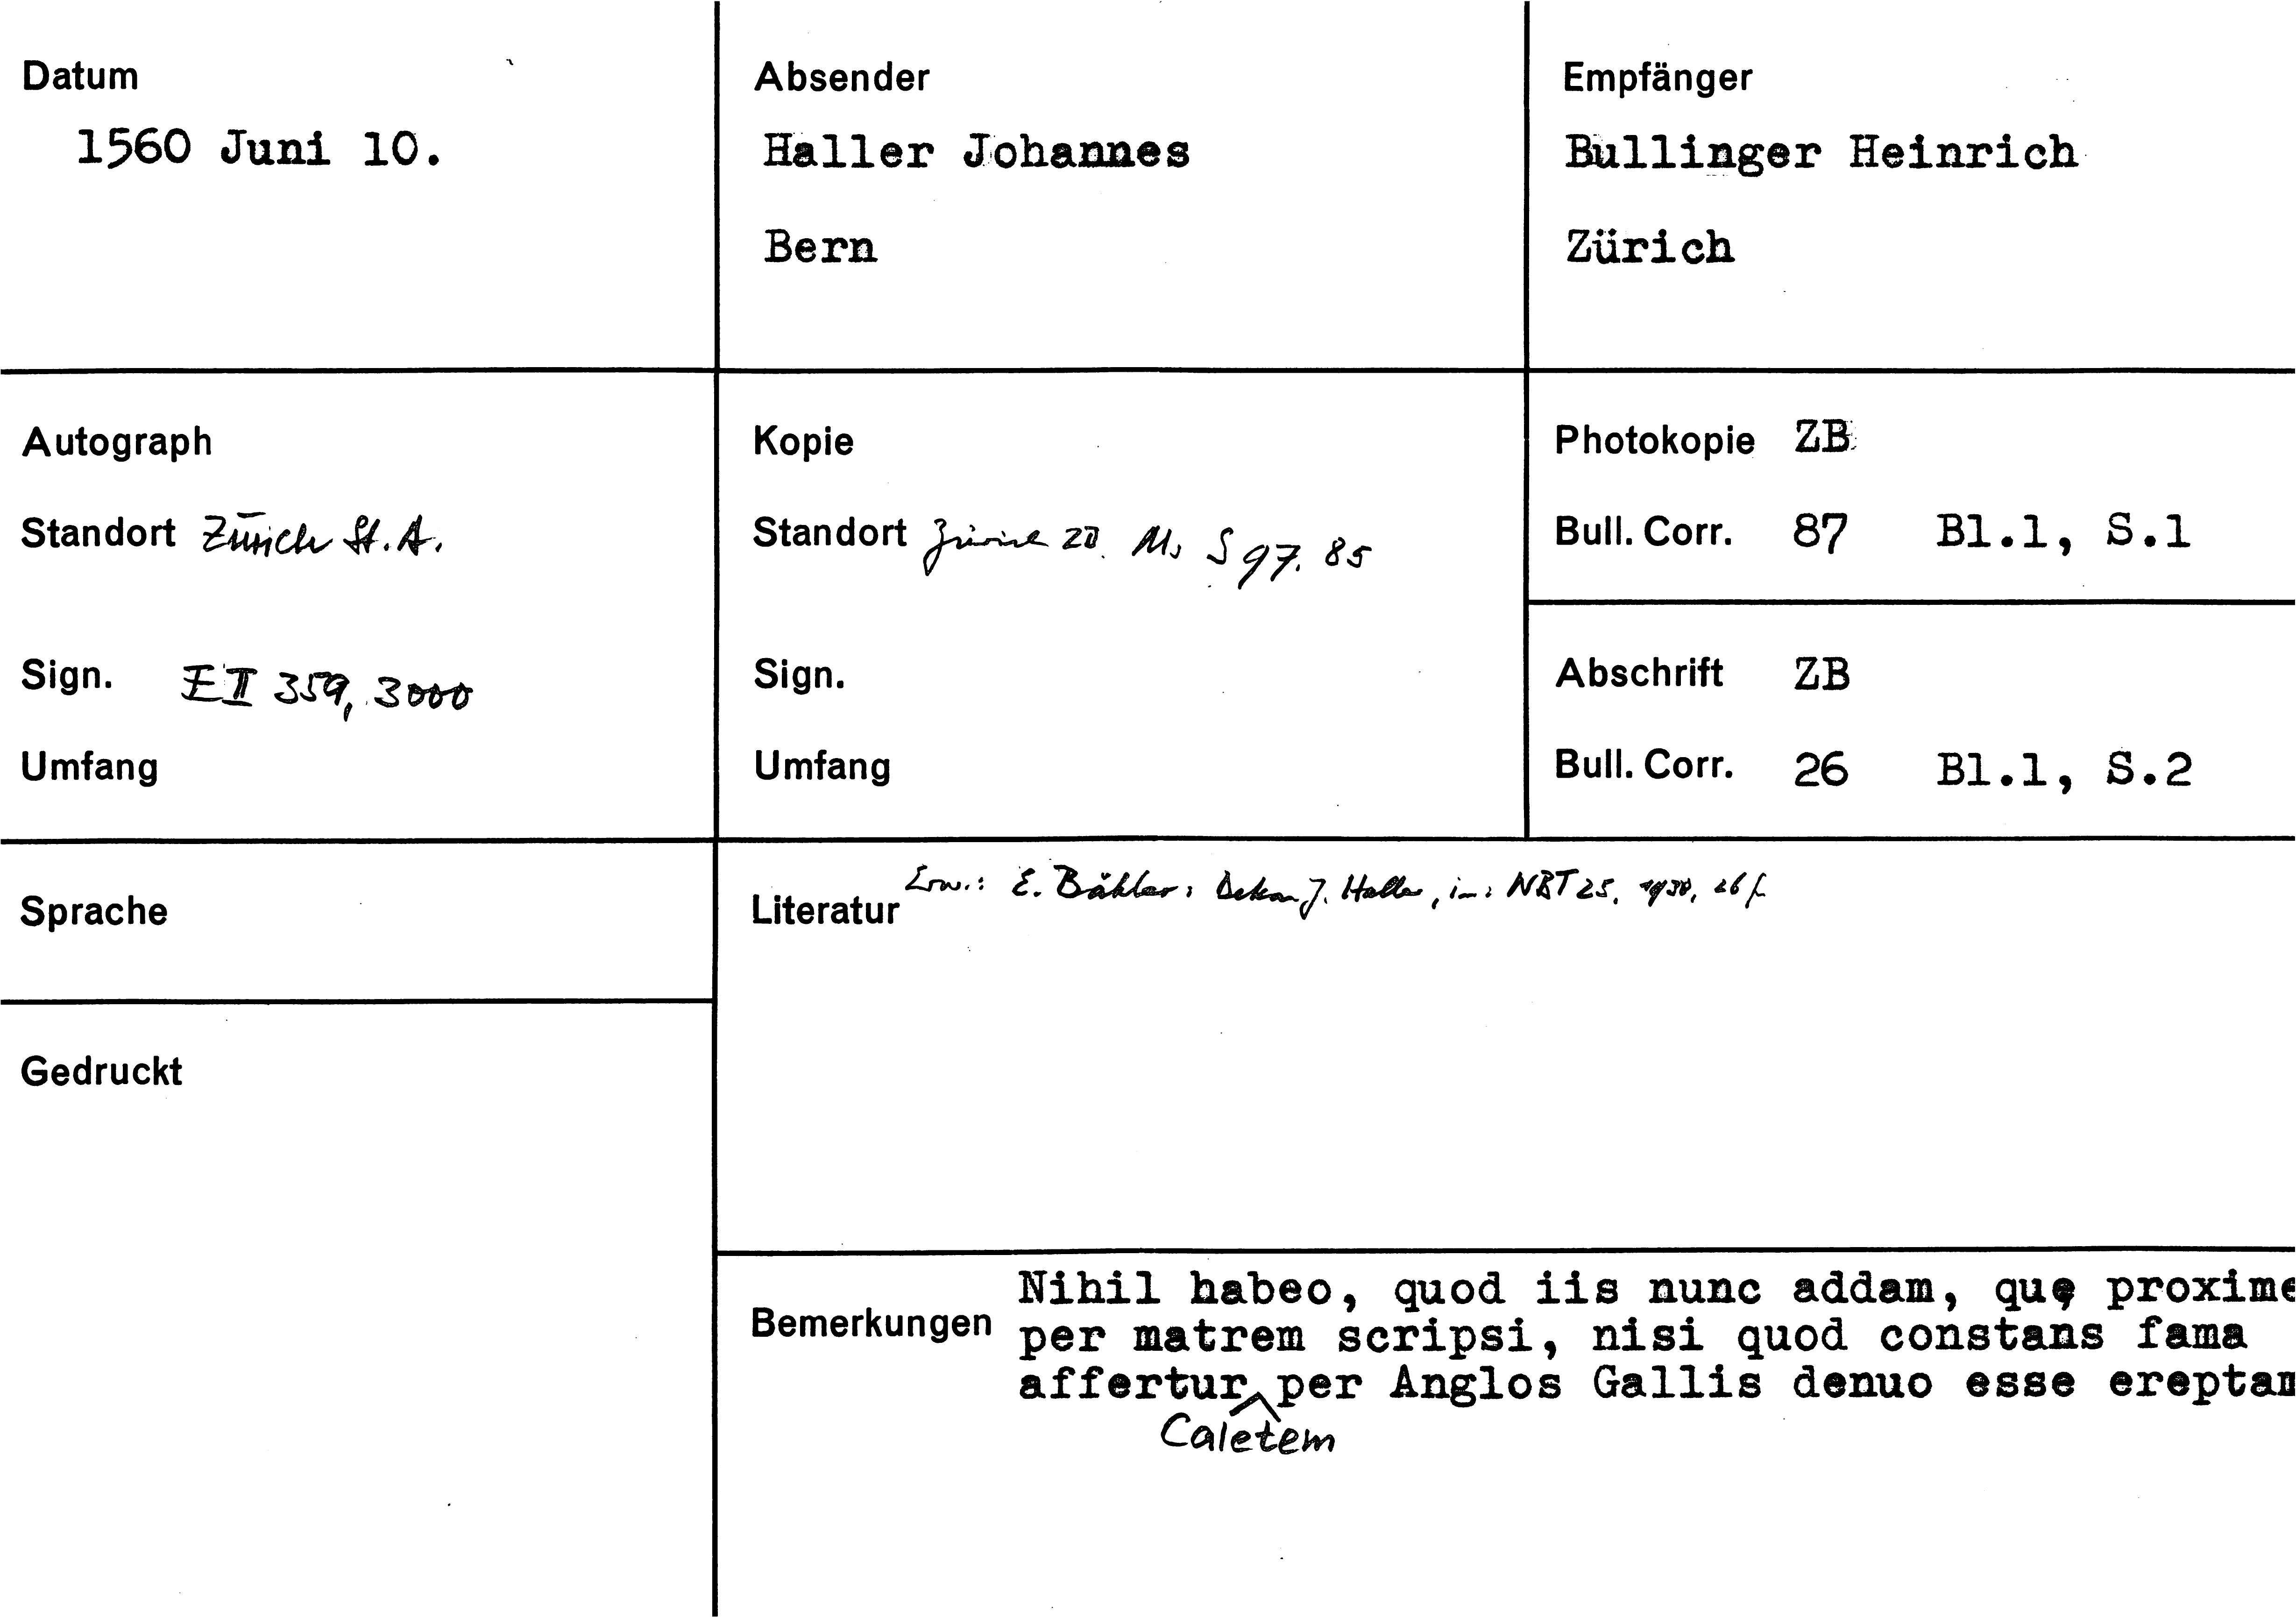 Datum
1560 Juni 10.
Absender
Haller Johannes
Bern
Empfänger
Bullinger Heinrich
Zürich
Autograph
Standort Zürich St.A.
Sign. E II 359, 3000
Umfang
Kopie
Standort Zürich ZB Ms S 97, 85
Sign.
Umfang
Photokopie ZB
Bull. Corr. 87 Bl.1, S.1
Abschrift ZB
Bull. Corr. 26 Bl.1, S.2
Sprache
Gedruckt
Literatur Erw.: E. Bähler: Dekan J. Haller, in: NBT 25, 26 f.
Bemerkungen
Nihil habeo, quod iis nunc addam, quę proxime
per matrem scripsi, nisi quod constans fama
affertur per Anglos Gallis denuo esse
Caletem